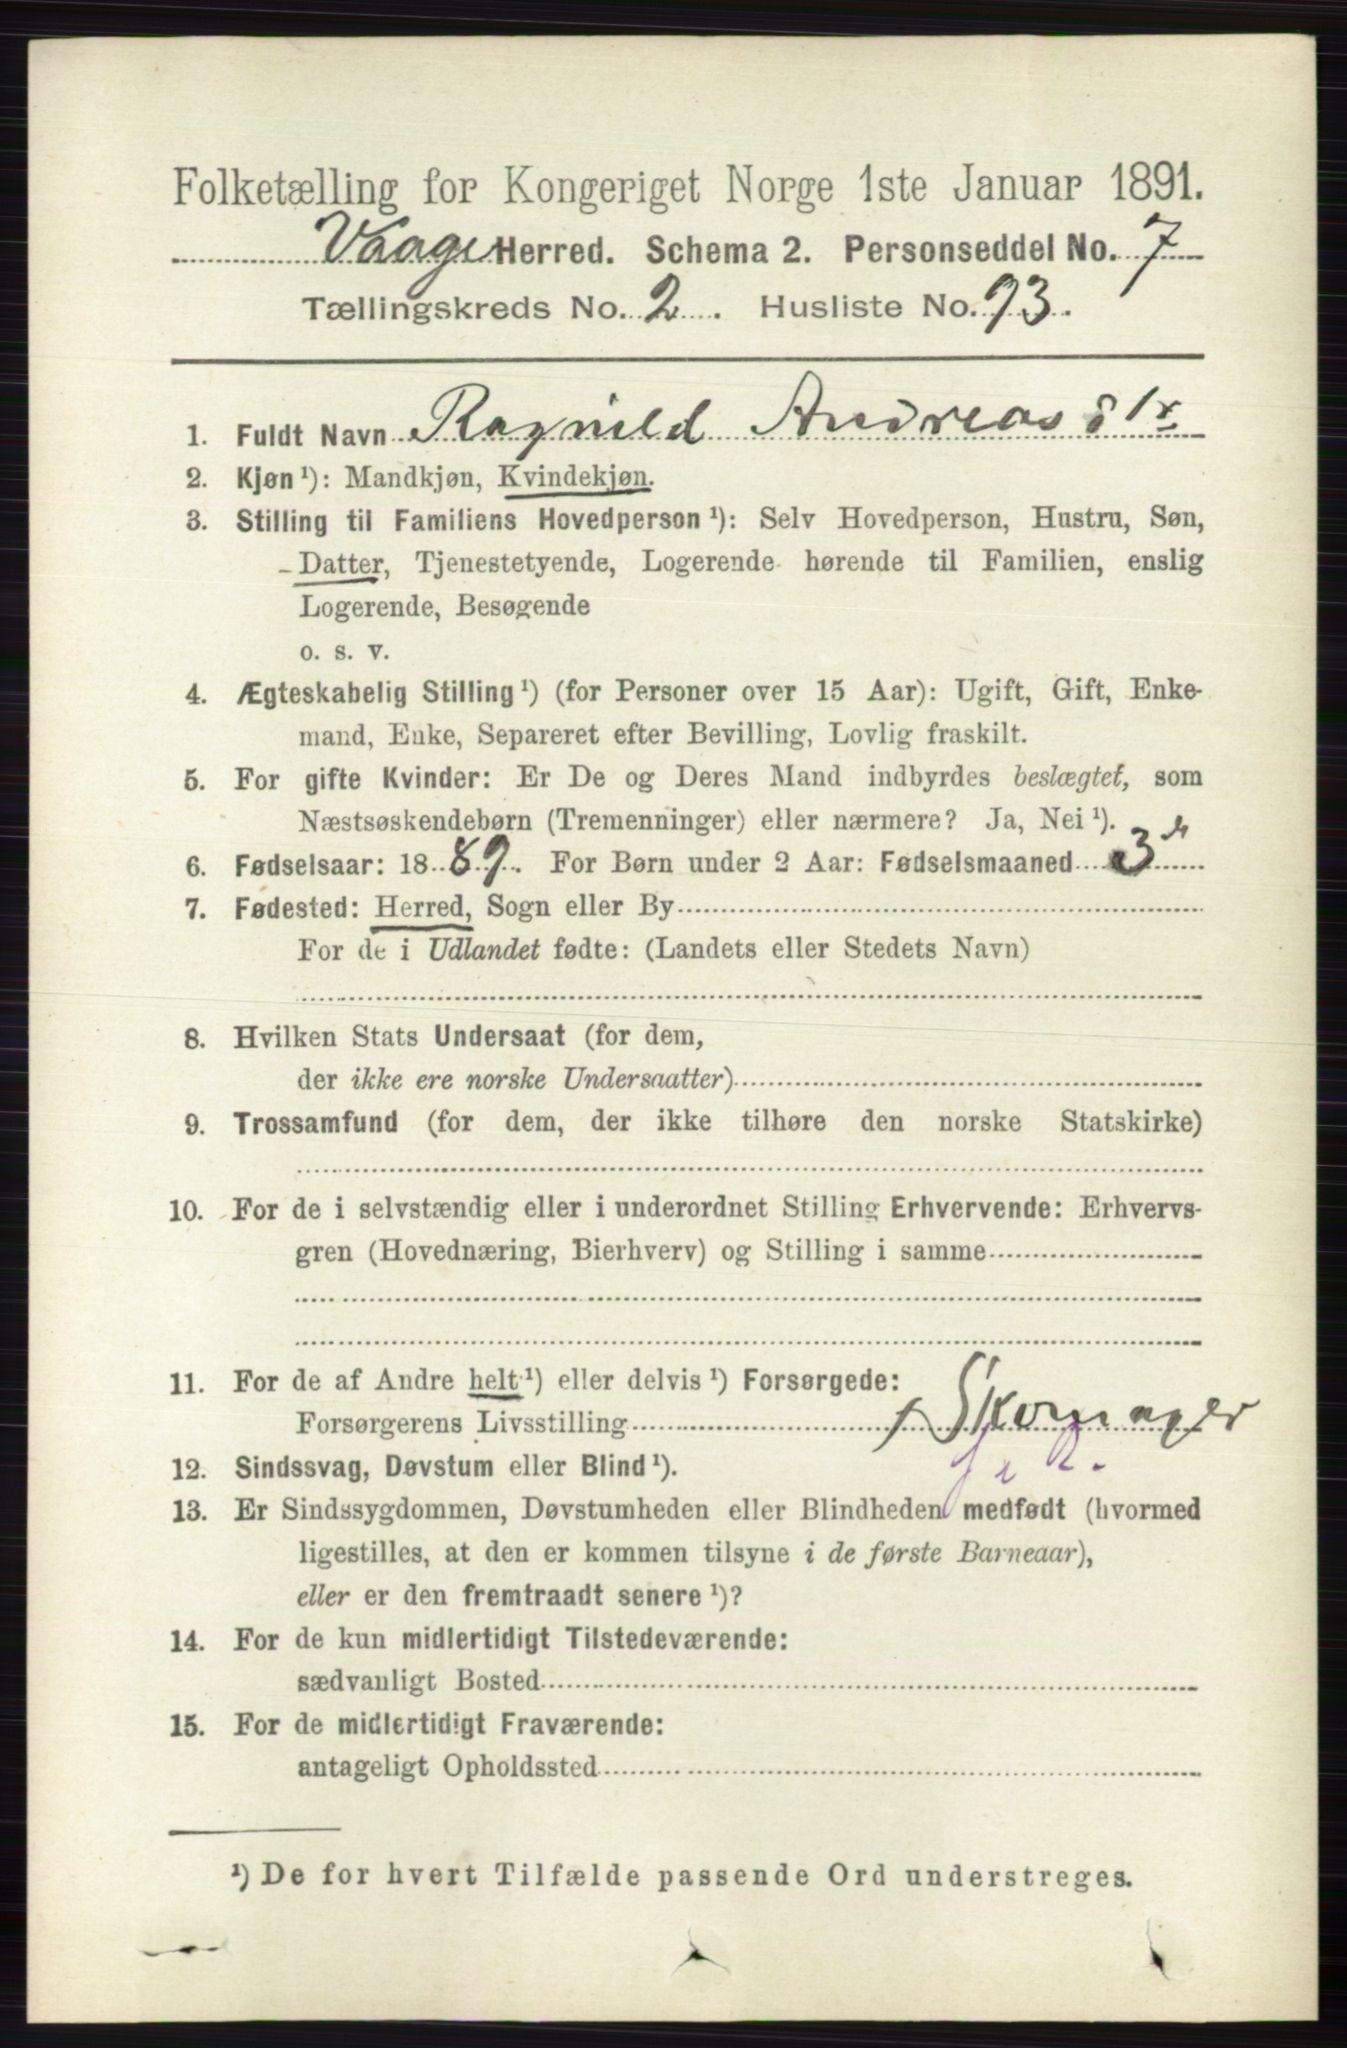 Folketælling for Kongeriget Norge 1ste Januar 1891.
Vaage Herred. Schema 2. Personseddel No. 7
Tællingskreds No. 2. Husliste No. 93.
1. Fuldt Navn Ragnild Andreasdtr
2. Kjøn ¹): Mandkjøn, Kvindekjøn.
3. Stilling til Familiens Hovedperson ¹): Selv Hovedperson, Hustru, Søn,
Datter, Tjenestetyende, Logerende hørende til Familien, enslig
Logerende, Besøgende
o. s. v.
4. Ægteskabelig Stilling ¹) (for Personer over 15 Aar): Ugift, Gift, Enke-
mand, Enke, Separeret efter Bevilling, Lovlig fraskilt.
5. For gifte Kvinder: Er De og Deres Mand indbyrdes beslægtet, som
Næstsøskendebørn (Tremenninger) eller nærmere? Ja, Nei ¹).
6. Fødselsaar: 1889. For Børn under 2 Aar: Fødselsmaaned 3
7. Fødested: Herred, Sogn eller By
For de i Udlandet fødte: (Landets eller Stedets Navn)
8. Hvilken Stats Undersaat (for dem,
der ikke ere norske Undersaatter)
9. Trossamfund (for dem, der ikke tilhøre den norske Statskirke)
10. For de i selvstændig eller i underordnet Stilling Erhvervende: Erhvervs-
gren (Hovednæring, Bierhverv) og Stilling i samme
11. For de af Andre helt ¹) eller delvis ¹) Forsørgede:
Forsørgerens Livsstilling f Skomager
12. Sindssvag, Døvstum eller Blind ¹).
13. Er Sindssygdommen, Døvstumheden eller Blindheden medfødt (hvormed
ligestilles, at den er kommen tilsyne i de første Barneaar),
eller er den fremtraadt senere ¹)?
14. For de kun midlertidigt Tilstedeværende:
sædvanligt Bosted
15. For de midlertidigt Fraværende:
antageligt Opholdssted
¹) De for hvert Tilfælde passende Ord understreges.